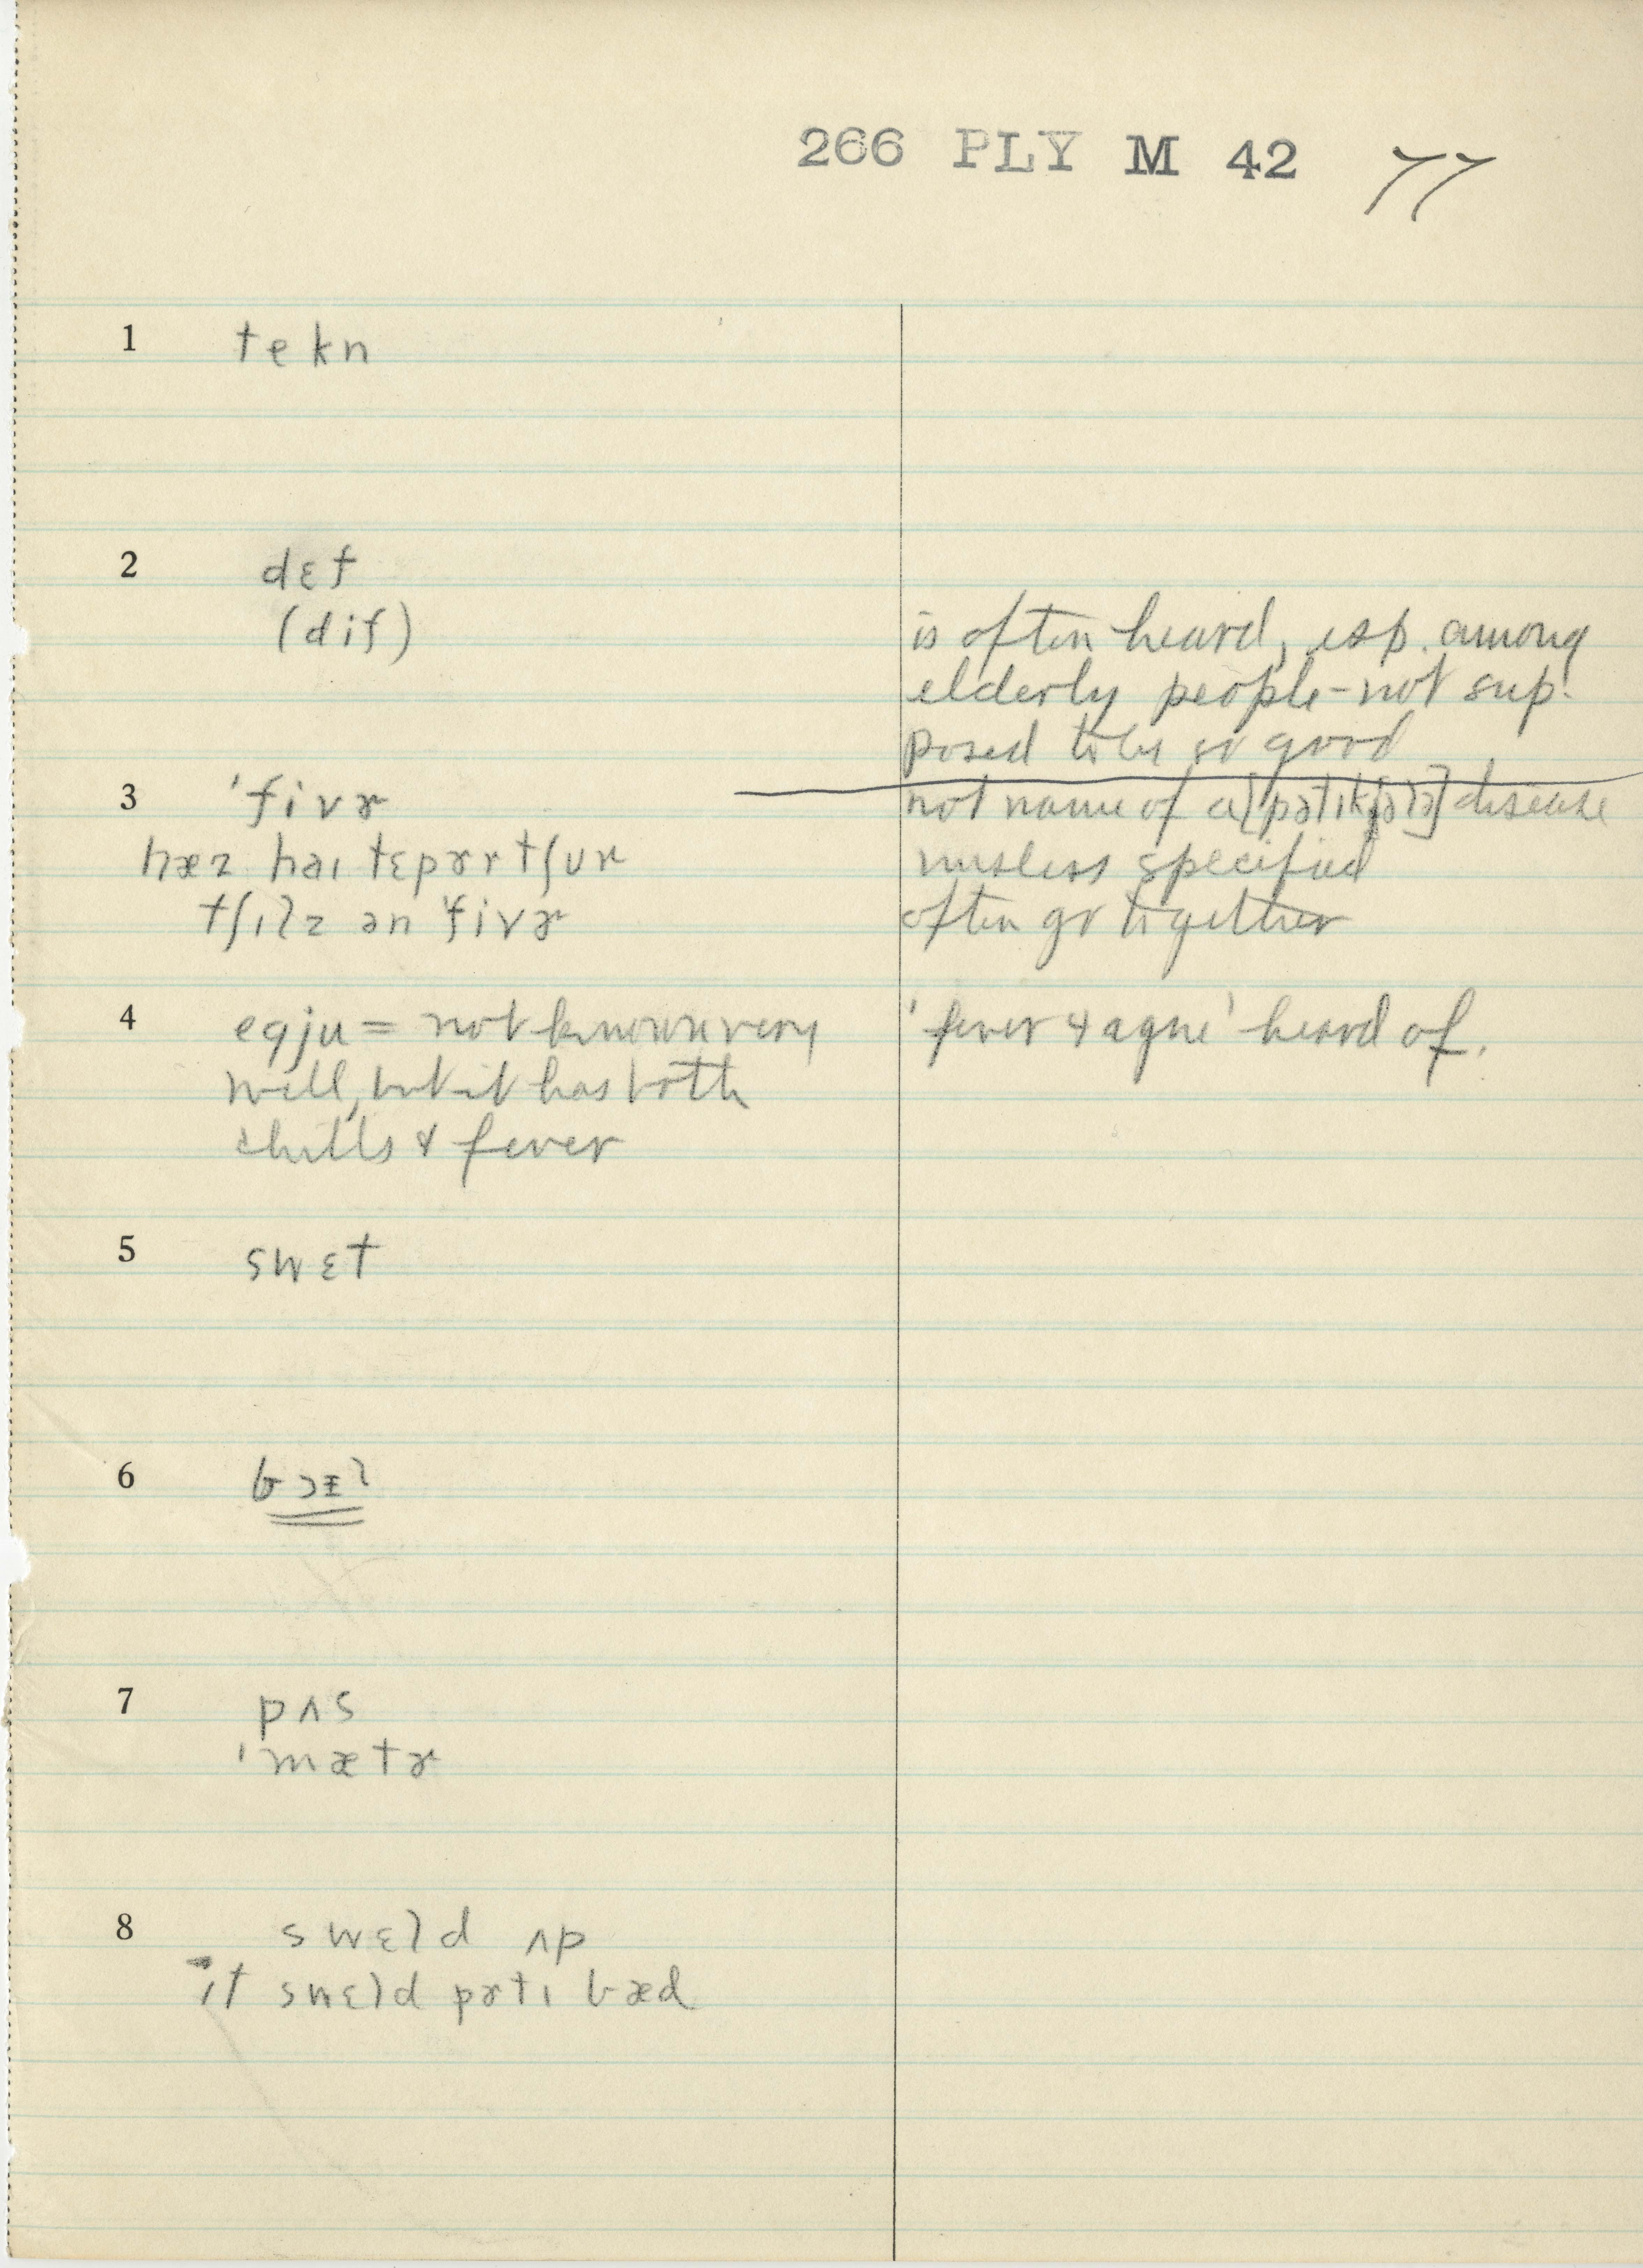 266 PLY M 42 77
1 tekn
2 dɛf
(dif) is often heard, esp. among
elderly people - not sup-
posed to be so good
3 ˈfivɚ not name of a [pətɪkjələ] disease
hæz haɪ tɛpɚrtʃuɚ unless specified
tʃɪlz ən ˈfivɚ often go together
4 egju = not known very 'fever & ague' heard of.
well, but it has both
chills & fever
5 swɛt
6
7 pʌs
ˈmætɚ
8 swɛld ʌp
ɪt swɛld pɚtɪ bæd